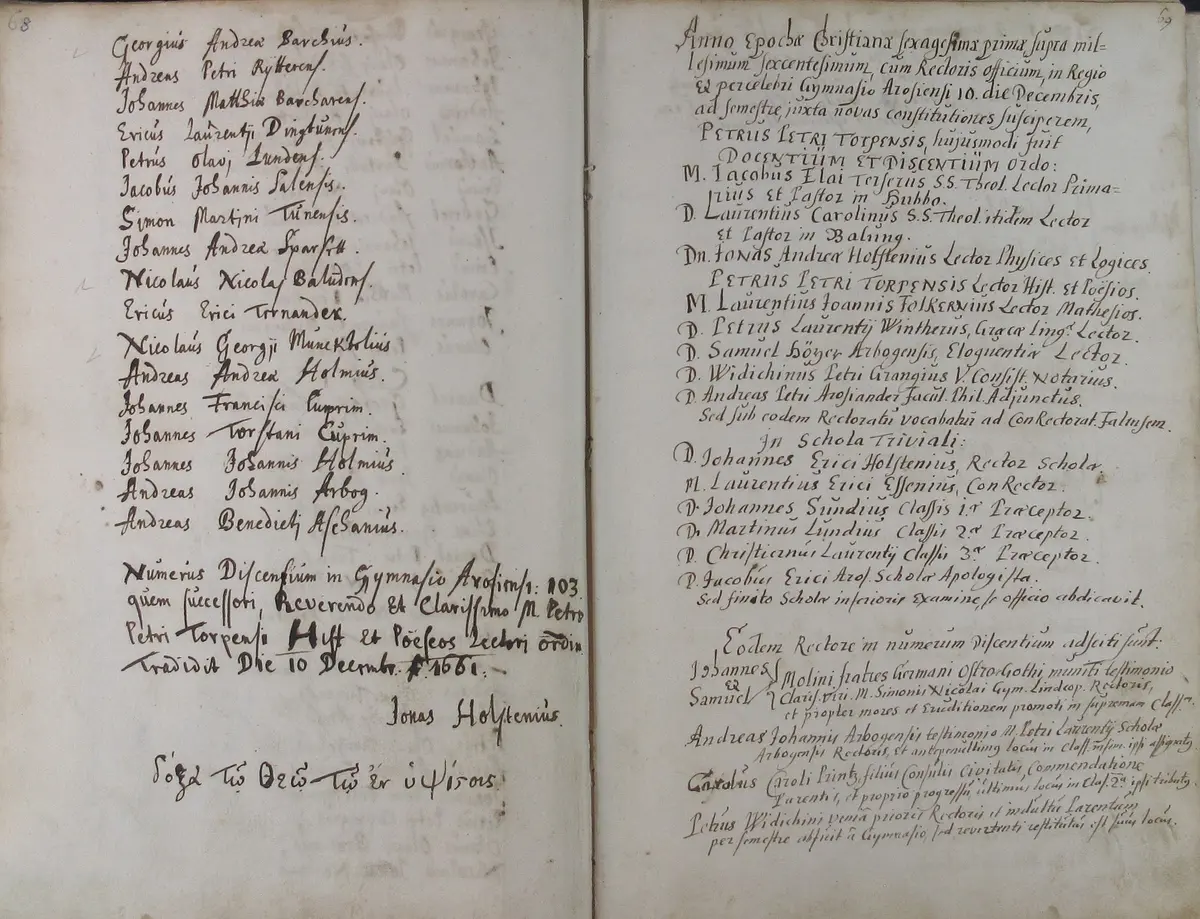 68
Georgius Andreæ Barchius.
Andreas Petri Rytterens.
Johannes Matthiæ Barcharens.
Ericus Laurentij Dingtunens.
Petrus Olavj Lundens.
Jacobus Johannis Salensis.
Simon Martini Tunensis.
Johannes Andreæ Sparsett.
Nicolaus Nicolaj
Ericus Erici Ternander.
Nicolaus Georgij Munektolius
Andreas Andreæ Holmius.
Johannes Francisci Cuprim.
Johannes Torstani Cuprim.
Johannes Johannis Holmius.
Andreas Johannis Arbog.
Andreas Benedictj Aschanius.
Numerus Discentium in Gymnasio Arosiensi: 103.
quem successori, Reverendo Et Clarissimo M. Petro
Petri Torpensi Hist Et Poëseos Lectori ordin.
Tradidit Die 10 Decembr. 1661.
Jonas Holstenius.
δόξα τῷ Θεῷ τῷ ἐν ὑψίσοις
69
Anno Epochæ Christianæ sexagesimæ primæ supra mil=
lesimum sexcentesimum, cum Rectoris officium, in Regio
Et percelebri Gymnasio Arosiensi 10. die Decembris,
ad semestre, juxta novas constitutiones susciperem,
PETRUS PETRI TORPENSIS, hujusmodi fuit
DOCENTIUM ET DISCENTIUM Ordo:
M. Jacobus Elai Terserus SS. Theol. Lector Prima=
rius Et Pastor in Hubbo.
D. Laurentius Carolinus S.S. Theol. itidem Lector
Et Pastor in Balung.
Dn. Jonas Andreæ Holstenius Lector Physices Et Logices.
PETRUS PETRI TORPENSIS Lector Hist. Et Poësios.
M. Laurentius Joannis FOLKERNIUS Lector Mathesios.
D. Petrus Laurentij Wintherus, Græcæ Ling. Lector.
D. Samuel Höyer Arbogensis, Eloquentiæ Lector.
D. Widichinus Petri Grangius V. Consist. Notarius.
D. Andreas Petri Arosiander Facul. Phil. Adjunctus.
Sed sub eodem Rectoratu vocabatur ad ConRectorat. Falunsem.
In Schola Triviali:
D. Johannes Erici Holstenius, Rector Scholæ.
M. Laurentius Erici Essenius, ConRector.
D. Johannes Sundius Classis 1.æ Præceptor.
D. Martinus Lundius Classis 2.æ Præceptor.
D. Christiernus Laurentij Classis 3.æ Præceptor.
D. Jacobus Erici Aros. Scholæ Apologista.
Sed finito Scholæ inferioris Examine, se officio abdicavit.
Eodem Rectore in numerum Discentium adsciti sunt:
Johannes Et Samuel Molini fratres Germani Ostro-Gothi, muniti testimonio
Claris. viri M. Simonis Nicolai Gym. Lindcop. Rectoris,
et propter mores et Eruditionem promoti in supremam Classem.
Andreas Johannis Arbogensis testimonio M. Petri Laurentij Scholæ
Arbogensis Rectoris, Et antepenultimus locus in Class. infim. ipsi assignatus.
Carolus Caroli Printz, filius Consulis Civitatis, Commendatione
Parentis, et proprio progressu, ultimus locus in Clas. 2.a ipsi tributus.
Petrus Widichini veniâ prioris Rectoris et indultu Parentum
per semestre abfuit â Gymnasio, sed revertenti restitutus est suus locus.